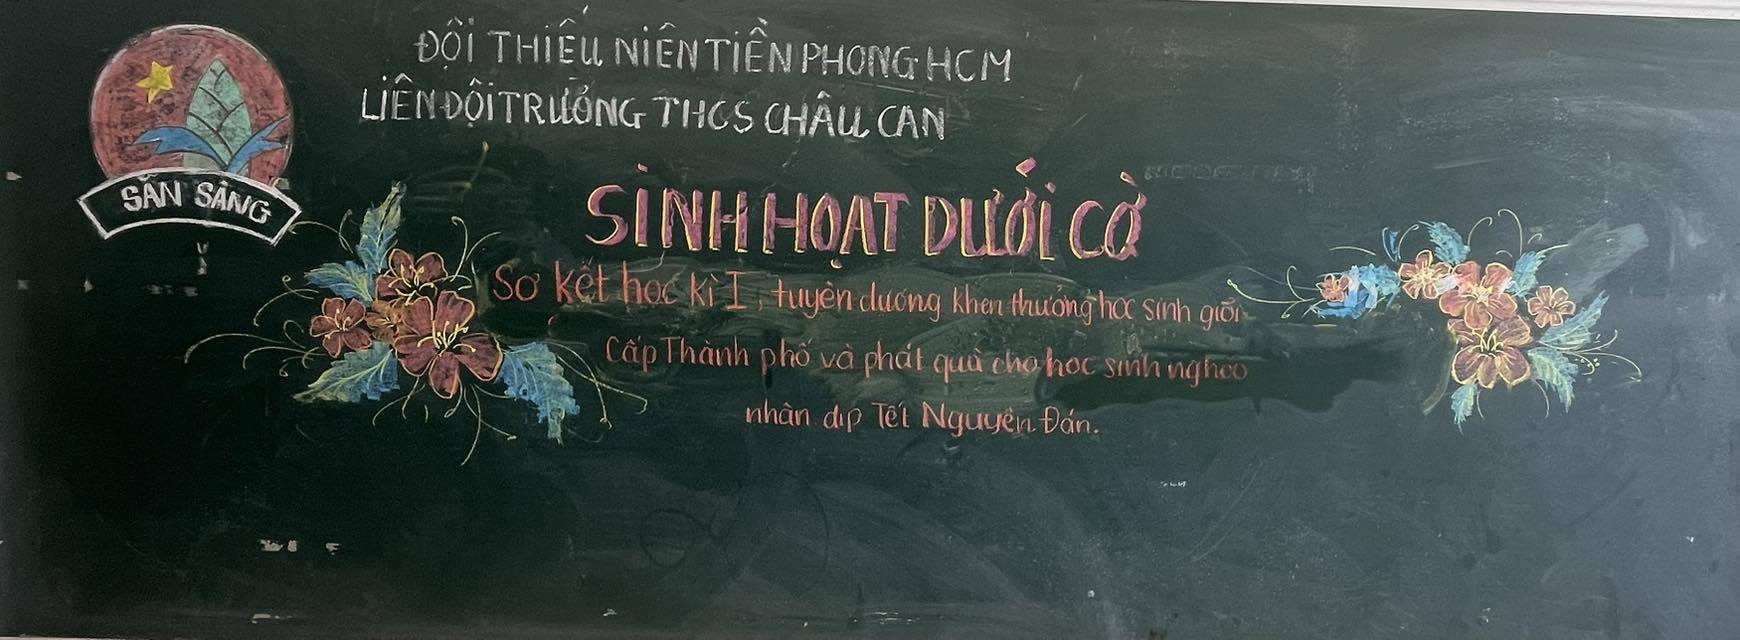 ĐỘI THIẾU NIÊN TIỀN PHONG HCM
LIÊN ĐỘI TRƯỜNG THCS CHÂU CAN
SẴN SÀNG
SINH HOẠT DƯỚI CỜ
Sơ kết học kì I, tuyên dương khen thưởng học sinh giỏi
Cấp Thành phố và phát quà cho học sinh nghèo
nhân dịp Tết Nguyên Đán.